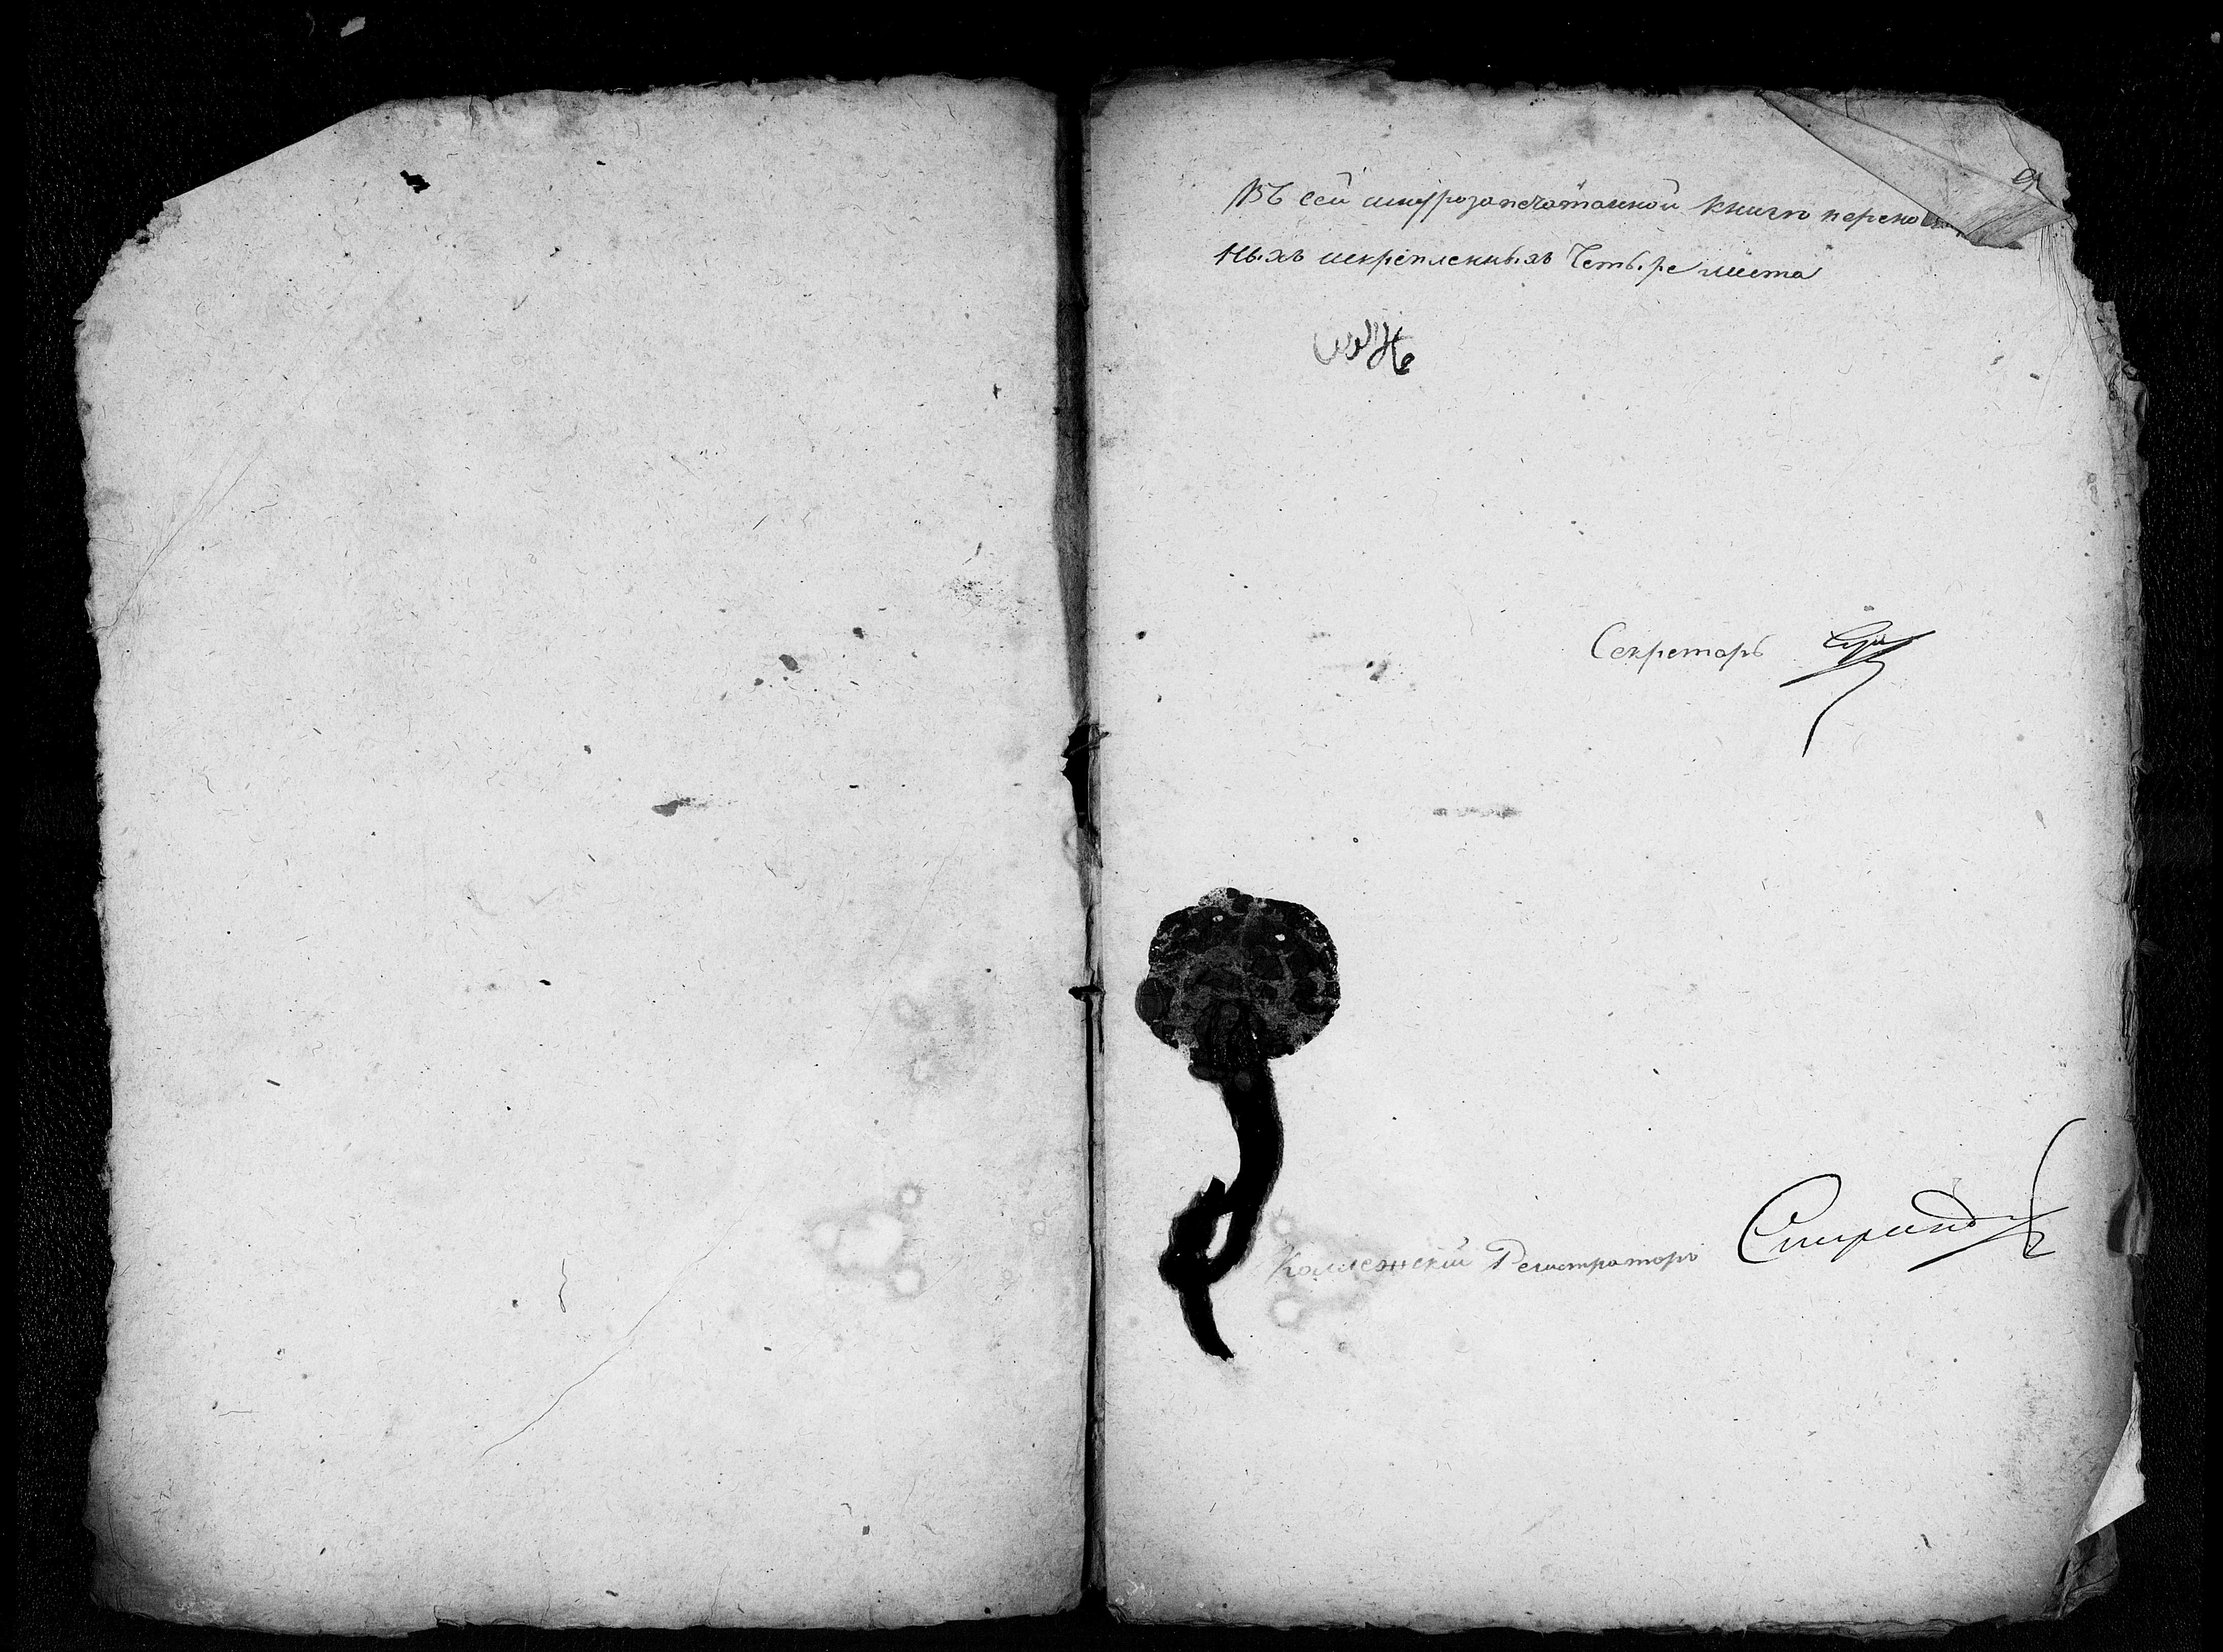 9
Въ сей шнурозапечатанной книгѣ перено
ныхъ искрепленныхъ Четыре листа
Секретарь
Коллежскій Регистраторъ